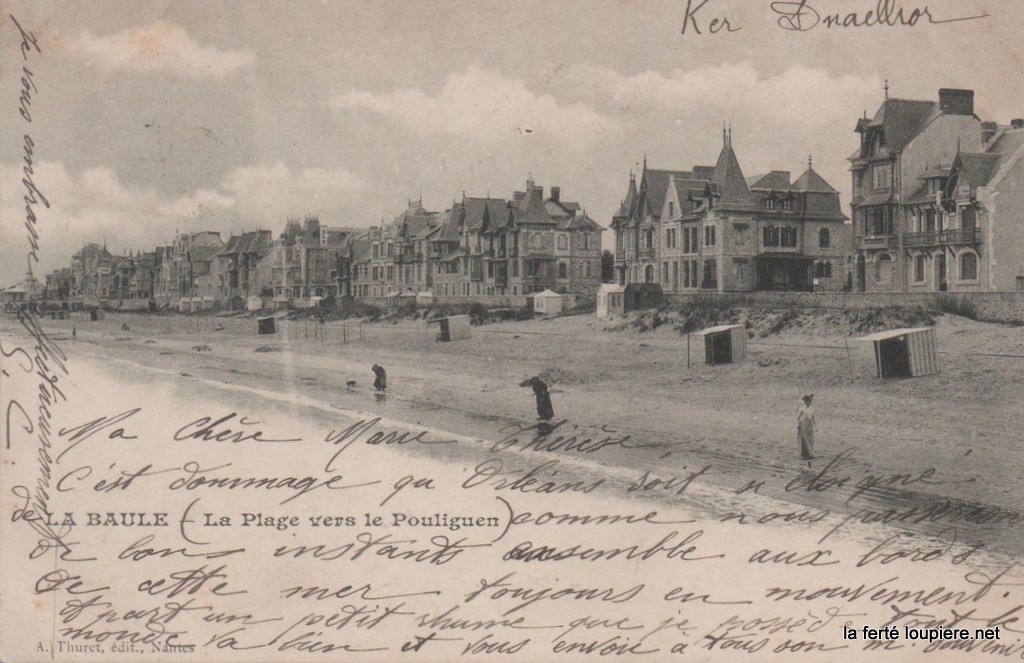 Ker
Ma chère Marie Thérèse,
C'est dommage qu Orléans soit si éloigné
comme nous passerions
LA BAULE (La Plage vers le Pouliguen)
de bons instants ensemble aux bords
de cette mer toujours en mouvement.
Apart un petit rhume que je possède tout le
monde va bien et vous envoie à tous son m. souvenir
A. Thuret, édit., Nantes
Je vous embrasse affectueusement
la ferté loupiere.net